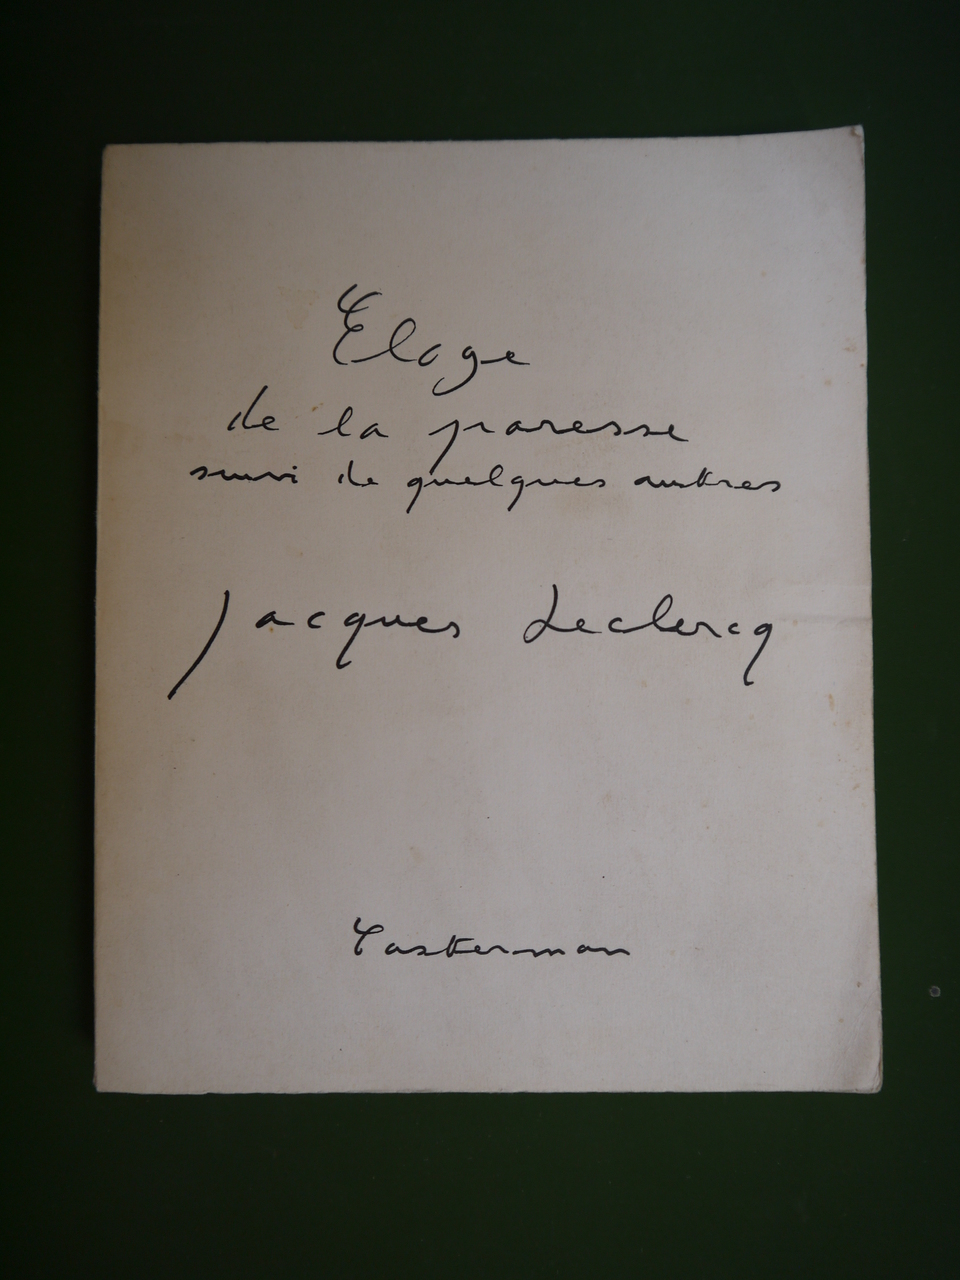 Eloge
de la paresse
suivi de quelques autres
Jacques Leclercq
Casterman